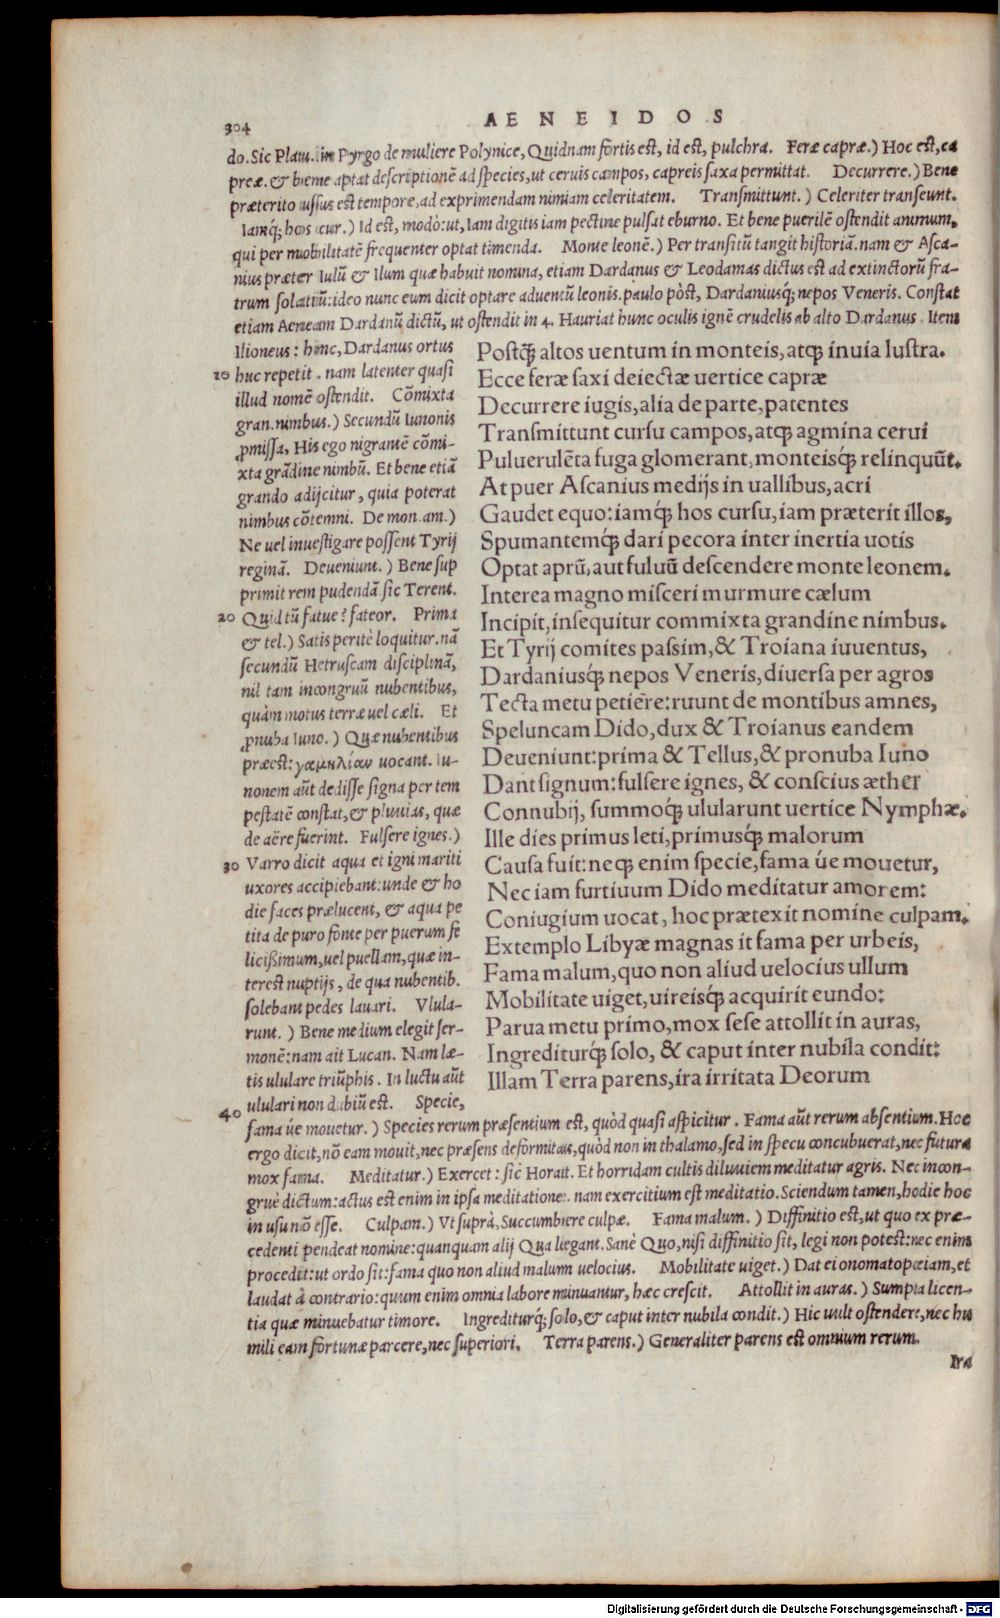 304
AENEIDOS
do. Sic Plau. in Pyrgo de muliere Polynice, Quidnam fortis est, id est, pulchra. Feræ capræ.) Hoc est, ca
preæ. & bene aptat descriptionē ad species, ut ceruis campos, capreis saxa permittat. Decurrere.) Bene
præterito usus est tempore, ad exprimendam nimiam celeritatem. Transmittunt.) Celeriter transeunt.
Iamq́; hos cur.) Id est, modò: ut, Iam digitis iam pectine pulsat eburno. Et bene puerilē ostendit animum,
qui per mobilitatē frequenter optat timenda. Monte leonē.) Per transitū tangit historiā. nam & Asca-
nius præter Iulū & Ilum quæ habuit nomina, etiam Dardanus & Leodamas dictus est ad extinctorū fra-
trum solatiū: ideo nunc eum dicit optare aduentū leonis. paulo pòst, Dardaniusq́; nepos Veneris. Constat
etiam Aeneam Dardanū dictū, ut ostendit in 4. Hauriat hunc oculis ignē crudelis ab alto Dardanus. Item
Ilioneus: hinc, Dardanus ortus
10 huc repetit. nam latenter quasi
illud nomē ostendit. Cōmixta
gran. nimbus.) Secundū Iunonis
ꝓmissa, His ego nigrantē cōmi-
xta grādine nimbū. Et bene etiā
grando adijcitur, quia poterat
nimbus cōtemni. De mon. am.)
Ne uel inuestigare possent Tyrij
reginā. Deueniunt.) Bene sup
primit rem pudendā sic Terent.
20 Quid tū fatue? fateor. Prima
& tel.) Satis peritè loquitur. nā
secundū Hetruscam disciplinā,
nil tam incongruū nubentibus,
quàm motus terræ uel cæli. Et
ꝓnuba Iuno.) Quæ nubentibus
præest: γαμηλίαν uocant. Iu-
nonem aūt dedisse signa per tem
pestatē constat, & pluuias, quæ
de aëre fuerint. Fulsere ignes.)
30 Varro dicit aqua et igni mariti
uxores accipiebant: unde & ho
die faces prælucent, & aqua pe
tita de puro fonte per puerum fe
licißimum, uel puellam, quæ in-
terest nuptijs, de qua nubentib.
solebant pedes lauari. Vlula-
runt.) Bene medium elegit ser-
monē: nam ait Lucan. Nam læ-
tis ululare triūphis. In luctu aūt
40 ululari non dubiū est. Specie,
Postꝙ̃ altos uentum in monteis, atqꝫ inuia lustra.
Ecce feræ saxi deiectæ uertice capræ
Decurrere iugis, alia de parte, patentes
Transmittunt cursu campos, atqꝫ agmina cerui
Puluerulēta fuga glomerant, monteisq́ꝫ relinquūt.
At puer Ascanius medijs in uallibus, acri
Gaudet equo: iamq́ꝫ hos cursu, iam præterit illos,
Spumantemq́ꝫ dari pecora inter inertia uotis
Optat aprū, aut fuluū descendere monte leonem.
Interea magno misceri murmure cælum
Incipit, insequitur commixta grandine nimbus.
Et Tyrij comites passim, & Troiana iuuentus,
Dardaniusq́ꝫ nepos Veneris, diuersa per agros
Tecta metu petiêre: ruunt de montibus amnes,
Speluncam Dido, dux & Troianus eandem
Deueniunt: prima & Tellus, & pronuba Iuno
Dant signum: fulsere ignes, & conscius æther
Connubij, summoq́ꝫ ulularunt uertice Nymphæ.
Ille dies primus leti, primusq́ꝫ malorum
Causa fuit: neqꝫ enim specie, fama úe mouetur,
Nec iam furtiuum Dido meditatur amorem:
Coniugium uocat, hoc prætexit nomine culpam.
Extemplo Libyæ magnas it fama per urbeis,
Fama malum, quo non aliud uelocius ullum
Mobilitate uiget, uireisq́ꝫ acquirit eundo:
Parua metu primo, mox sese attollit in auras,
Ingrediturq́ꝫ solo, & caput inter nubila condit:
Illam Terra parens, ira irritata Deorum
fama úe mouetur.) Species rerum præsentium est, quòd quasi aspicitur. Fama aūt rerum absentium. Hoc
ergo dicit, nō eam mouit, nec præsens deformitas, quòd non in thalamo, sed in specu concubuerat, nec futura
mox fama. Meditatur.) Exercet: sic Horat. Et horridam cultis diluuiem meditatur agris. Nec incon-
gruè dictum: actus est enim in ipsa meditatione. nam exercitium est meditatio. Sciendum tamen, hodie hoc
in usu nō esse. Culpam.) Vt suprà, Succumbere culpæ. Fama malum.) Diffinitio est, ut quo ex præ-
cedenti pendeat nomine: quanquam alij Qua legant. Sanè Quo, nisi diffinitio sit, legi non potest: nec enim
procedit: ut ordo sit: fama quo non aliud malum uelocius. Mobilitate uiget.) Dat ei onomatopœiam, et
laudat à contrario: quum enim omnia labore minuantur, hæc crescit. Attollit in auras.) Sumpta licen-
tia quæ minuebatur timore. Ingrediturq́; solo, & caput inter nubila condit.) Hic uult ostendere, nec hu
mili eam fortunæ parcere, nec superiori. Terra parens.) Generaliter parens est omnium rerum.
Ira
Digitalisierung gefördert durch die Deutsche Forschungsgemeinschaft - DFG